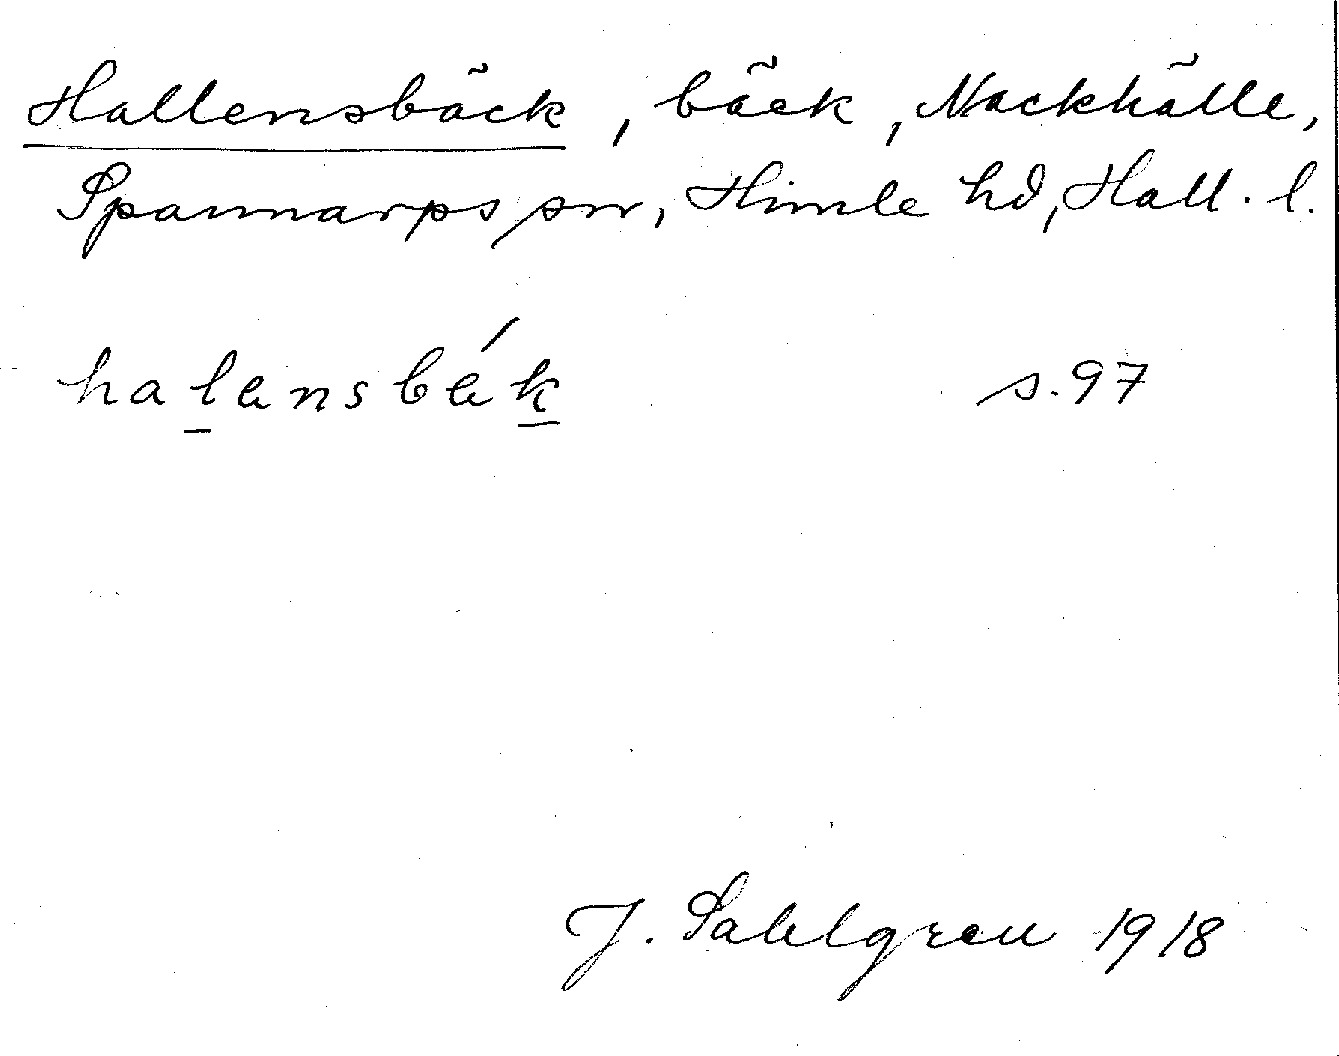 Hallensbäck, bäck, Nackhälle,
Spannarps sn, Himle hd, Hall. l.
halensbæ´k s.97
J. Sahlgren 1918